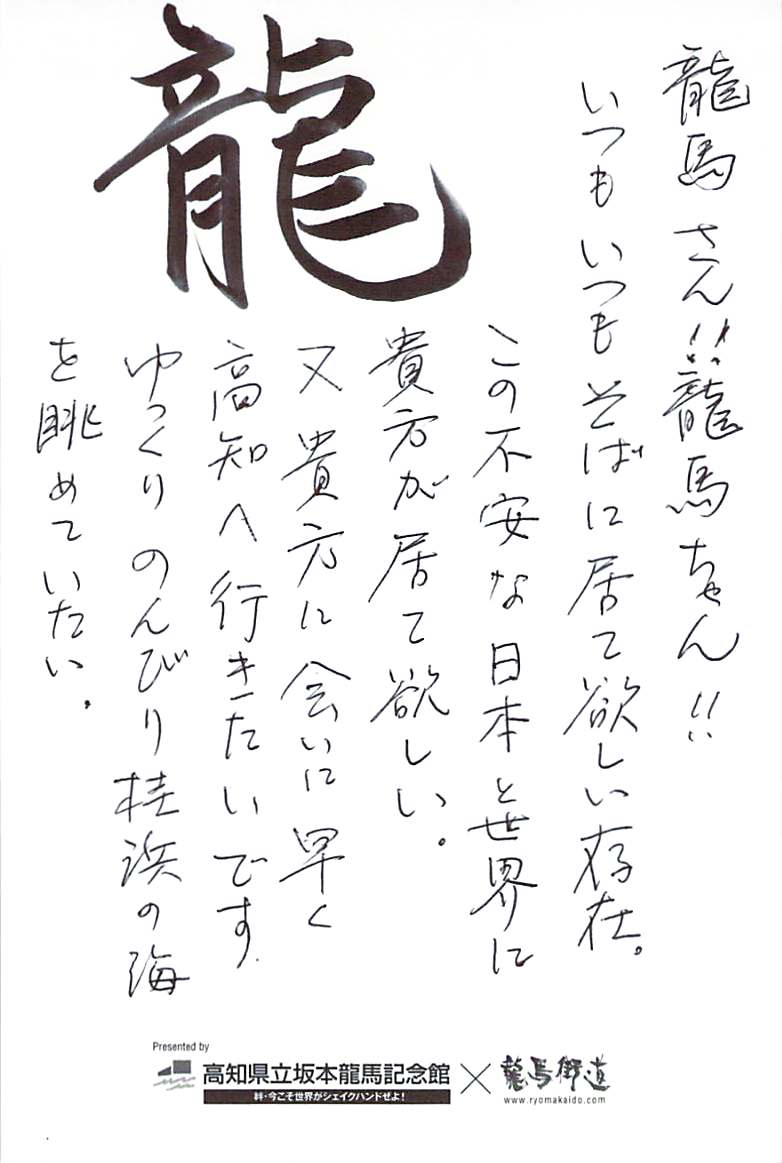 龍
龍馬さん!!龍馬ちゃん!!
いつもいつもそばに居て欲しい存在。
この不安な日本と世界に
貴方が居て欲しい。
又貴方に会いに早く
高知へ行きたいです.
ゆっくりのんびり桂浜の海
を眺めていたい.
Presented by
高知県立坂本龍馬記念館 × 龍馬街道
絆・今こそ世界がシェイクハンドぜよ!
www.ryomakaido.com